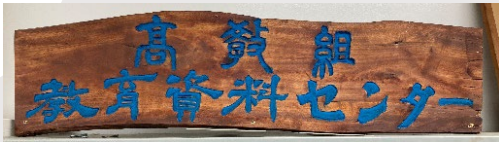 高教組
教育資料センター